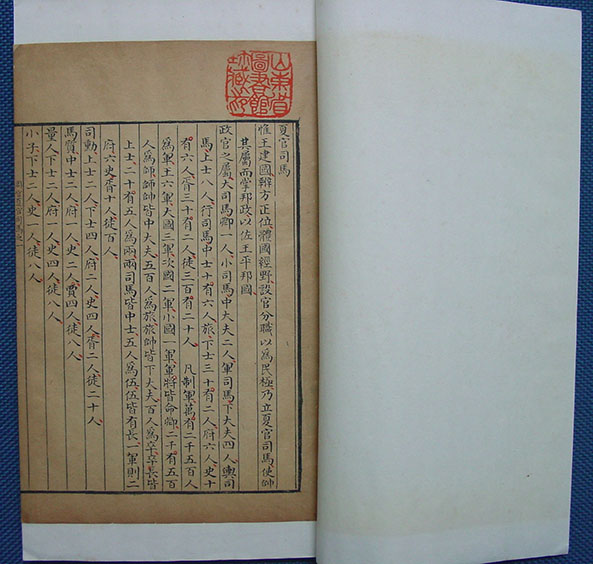 山東省
圖書館
珍藏印
夏官司馬
惟王建國辨方正位體國經野設官分職以為民極乃立夏官司馬使帥
其屬而掌邦政以佐王平邦國
政官之屬大司馬卿一人小司馬中大夫二人軍司馬下大夫四人輿司
馬上士八人行司馬中士十有六人旅下士三十有二人府六人史十
有六人胥三十有二人徒三百有二十人 凡制軍萬有二千五百人
為軍王六軍大國三軍次國二軍小國一軍軍將皆命卿二千有五百
人為師師帥皆中大夫五百人為旅旅帥皆下大夫百人為卒卒長皆
上士二十有五人為兩兩司馬皆中士五人為伍伍皆有長一軍則二
府六史胥十人徒百人
司勳上士二人下士四人府二人史四人胥二人徒二十人
馬質中士二人府一人史二人賈四人徒八人
量人下士二人府一人史四人徒八人
小子下士二人史一人徒八人